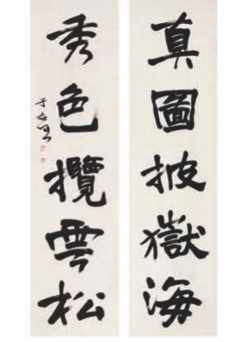 真圖披嶽海
秀色攬雲松